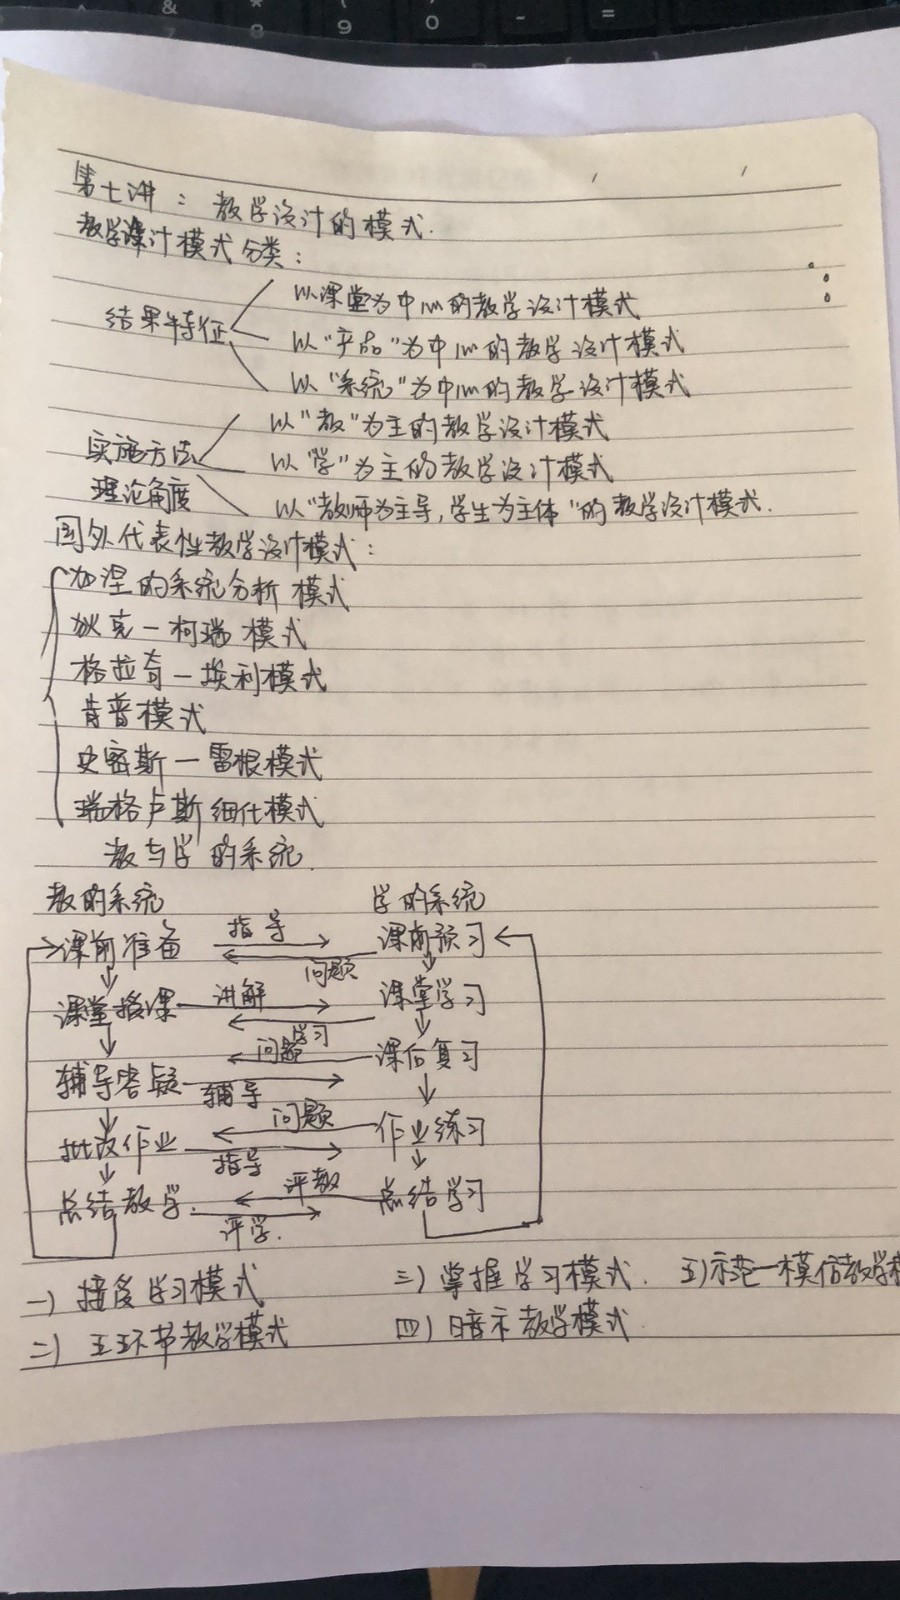 第七讲：教学设计的模式.
教学设计模式分类：
以课堂为中心的教学设计模式
结果特征
以"产品"为中心的教学设计模式
以"系统"为中心的教学设计模式
以"教"为主的教学设计模式
实施方法
以"学"为主的教学设计模式
理论角度
以"教师为主导,学生为主体"的教学设计模式.
国外代表性教学设计模式：
加涅的系统分析模式
狄克一柯瑞模式
格拉奇一埃利模式
肯普模式
史密斯一雷根模式
瑞格卢斯细化模式
教与学的系统.
教的系统 学的系统
课前准备 指导 课前预习
问题
课堂授课 讲解 课堂学习
学习
问题 课后复习
辅导答疑 辅导
问题 作业练习
批改作业 指导
评教 总结学习
总结教学. 评学.
一) 接受学习模式 三) 掌握学习模式. 五)示范一模仿教学
二) 五环节教学模式 四) 暗示教学模式.
7 8 9 0 - =
& *